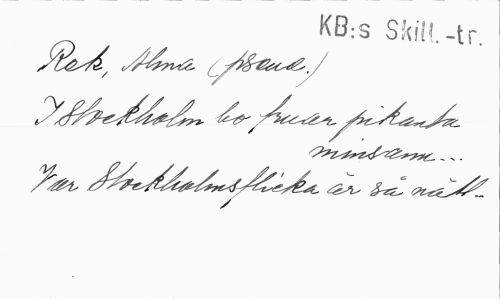 KB:s Skill.-tr.
Rek, Alma (pseud.)
I Stockholm bo fruar pikanta
minsann...
Var Stockholmsflicka är så nätt..